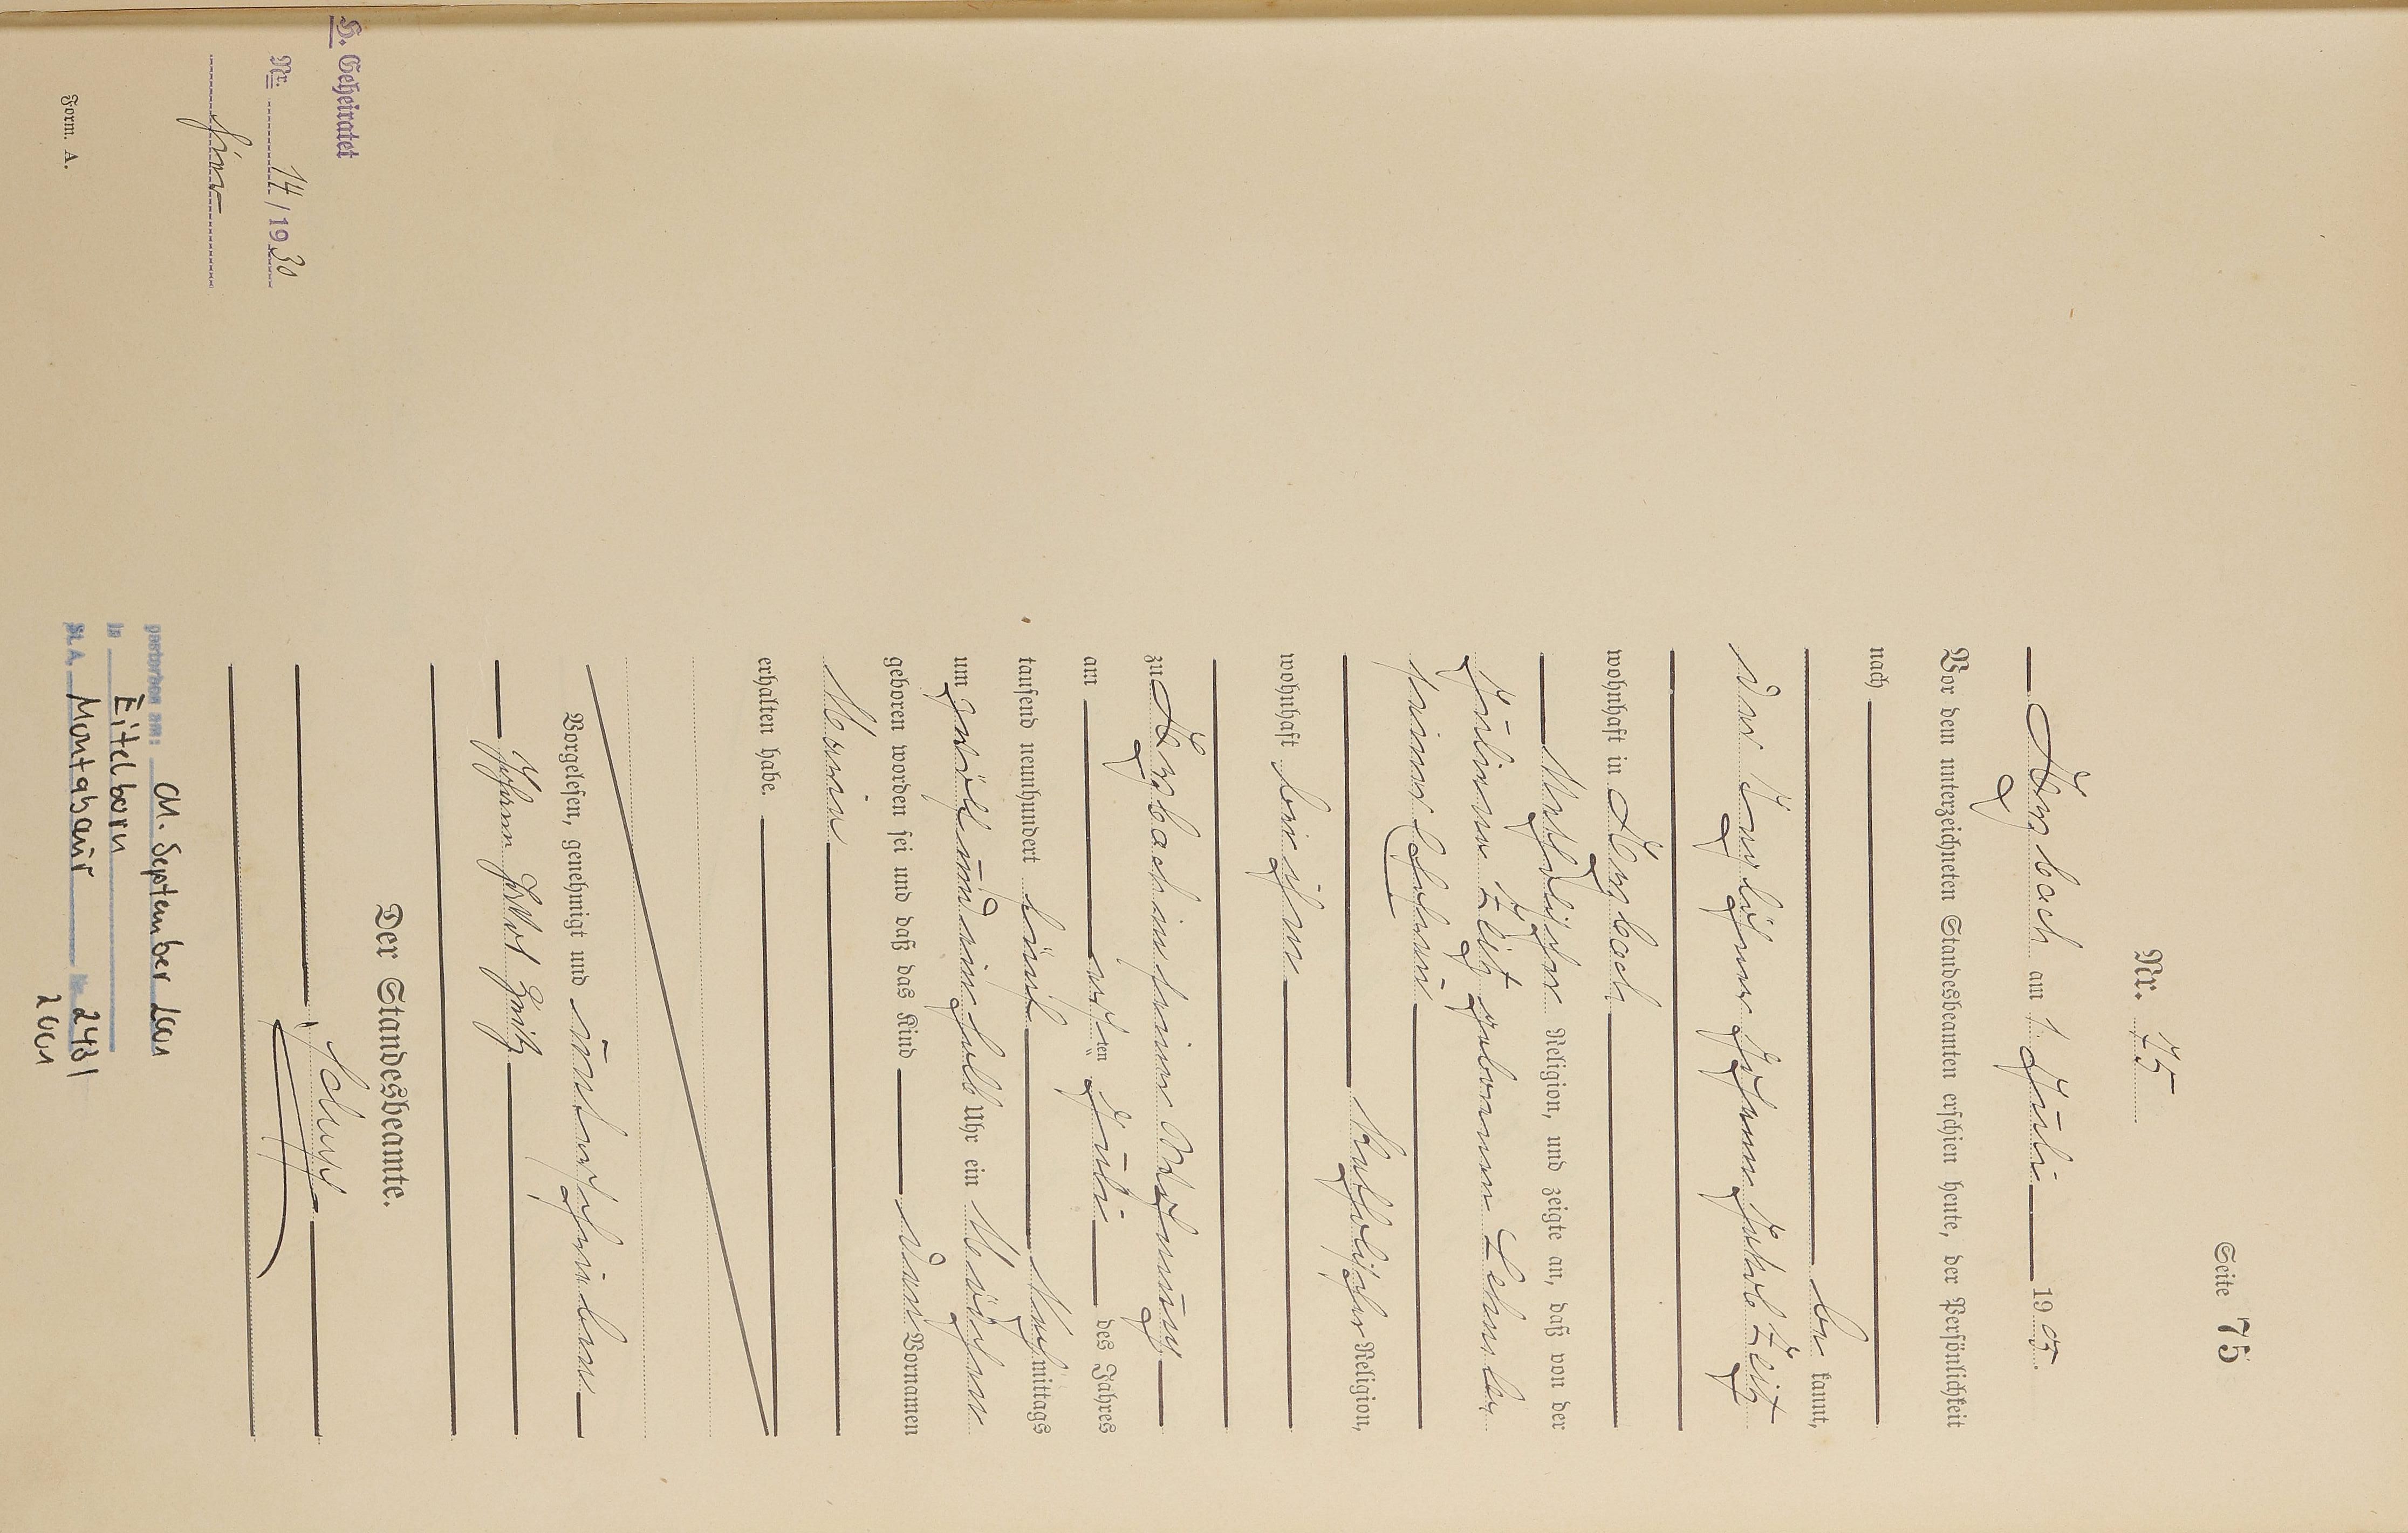 Seite 75
Nr. 75
Arzbach am 1. Juli 1905.
Vor dem unterzeichneten Standesbeamten erschien heute, der Persönlichkeit
nach
be kannt,
der Taglöhner Johann Jakob Zeitz
wohnhaft in Arzbach
katholischer Religion, und zeigte an, daß von der
Juliana Zeitz geborenen Lehmler
seiner Ehefrau
katholischer Religion,
wohnhaft bei ihm
zu Arzbach in seiner Wohnung
am ersten Juli des Jahres
tausend neunhundert fünf Nachmittags
um zwölf und eine halb Uhr ein Mädchen
geboren worden sei und daß das Kind den Vornamen
Maria
erhalten habe.
Vorgelesen, genehmigt und unterschrieben
Johann Jakob Zeitz
Der Standesbeamte.
Schupp
H. Geheiratet
Nr. 14/1930
hier
Form. A.
gestorben am: 01. September 2001
in Eitelborn
St. A. Montabaur Nr. 248/
2001